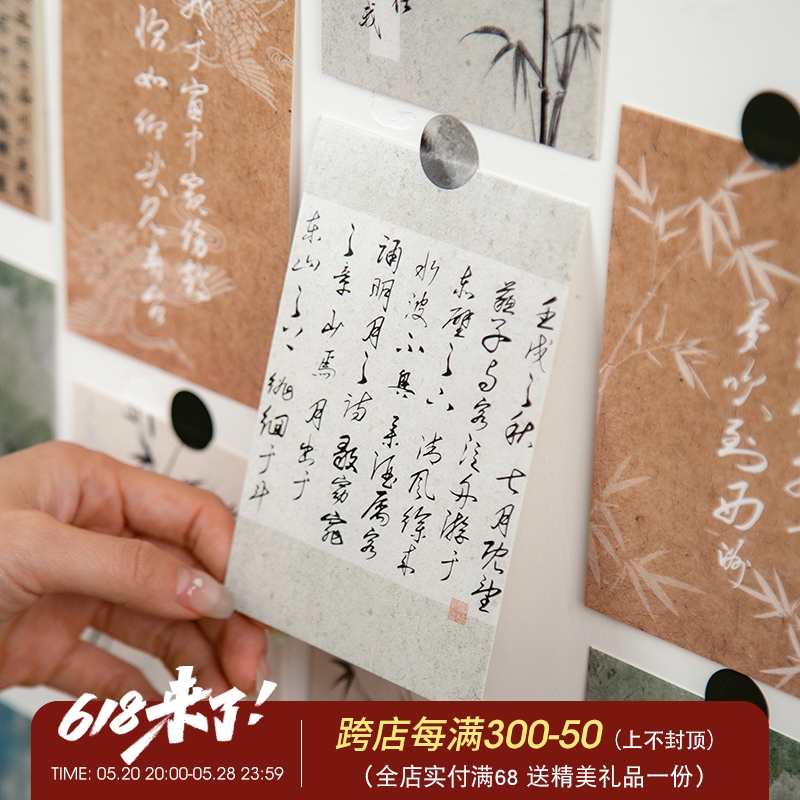 恰如仰头见春台
壬戌之秋七月既望
蘇子与客泛舟游于
赤壁之下清风徐来
水波不兴举酒属客
诵明月之诗歌窈窕
之章少焉月出于
东山之上徘徊于斗
吹到西洲
618来了!
TIME: 05.20 20:00-05.28 23:59
跨店每满300-50（上不封顶）
（全店实付满68 送精美礼品一份）